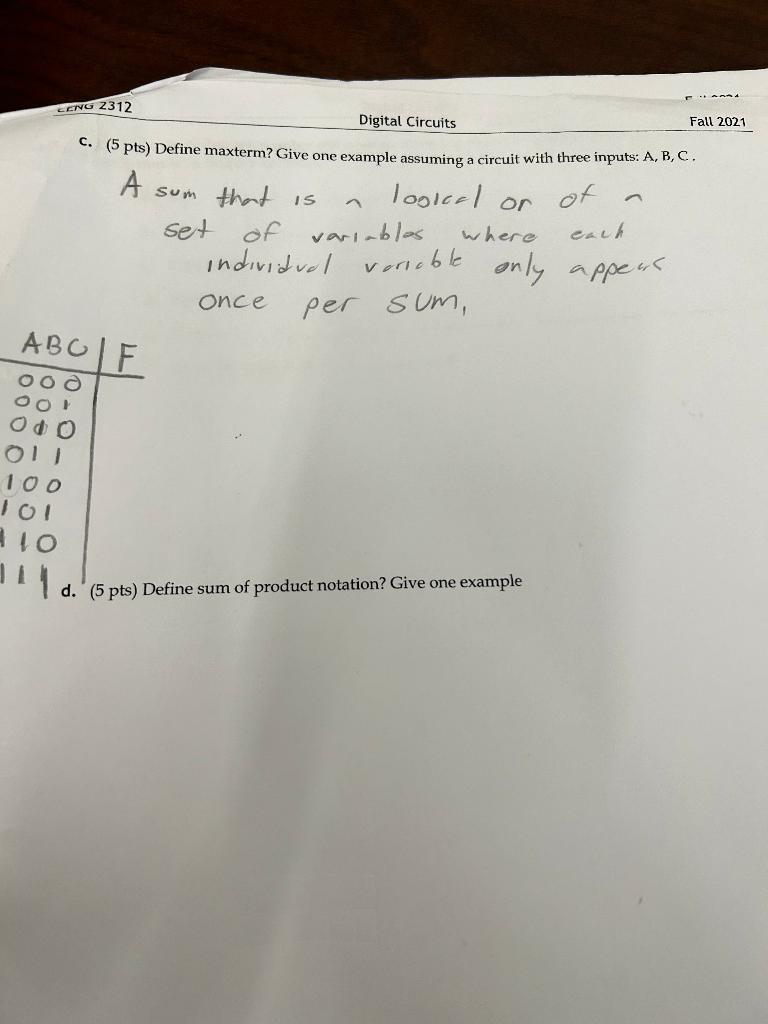 CENG 2312
Digital Circuits
Fall 2021
c. (5 pts) Define maxterm? Give one example assuming a circuit with three inputs: A, B, C.
A sum that is a logical or of a
set of variables where each
individual variable only appears
once per sum,
ABC F
000
001
010
011
100
101
110
111
d. (5 pts) Define sum of product notation? Give one example